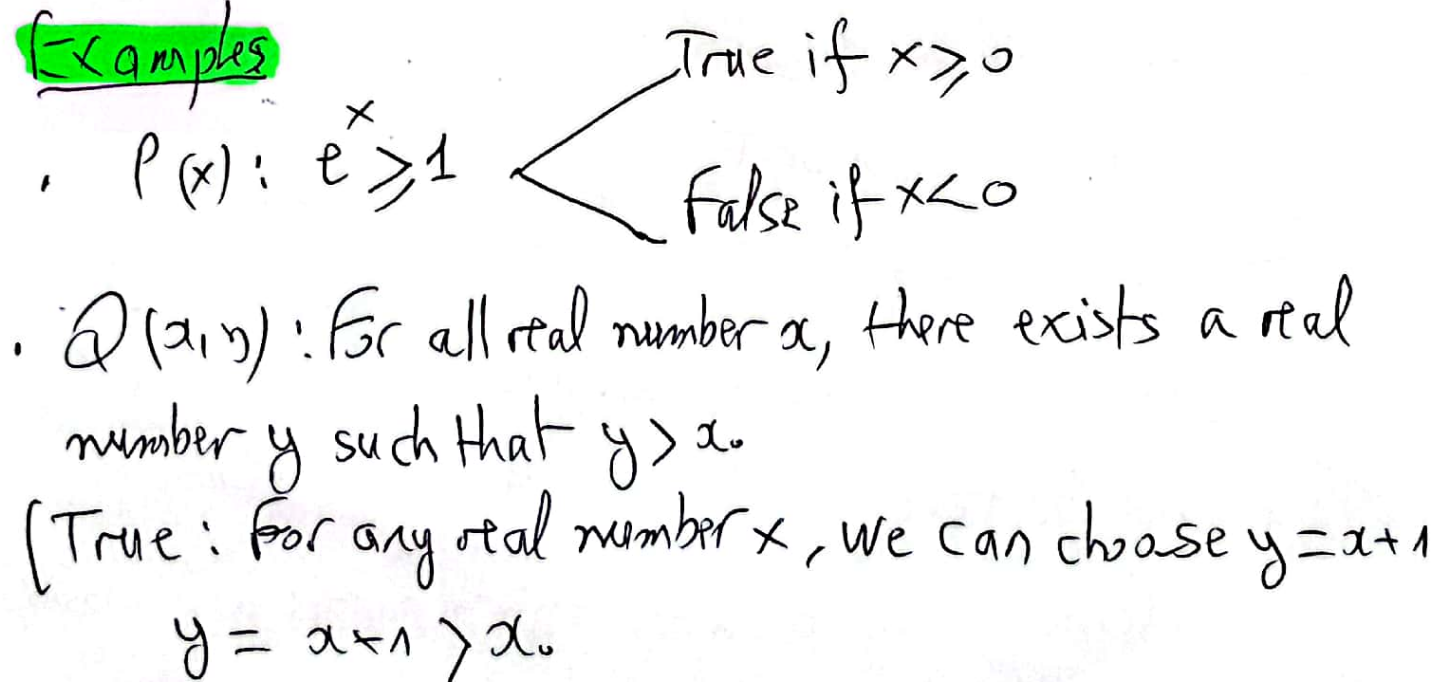 Examples
True if x ⩾ 0
. P(x): e^x ⩾ 1
False if x < 0
. Q(x,y): For all real number x, there exists a real
number y such that y > x.
(True: For any real number x, we can choose y = x+1
y = x+1 > x.